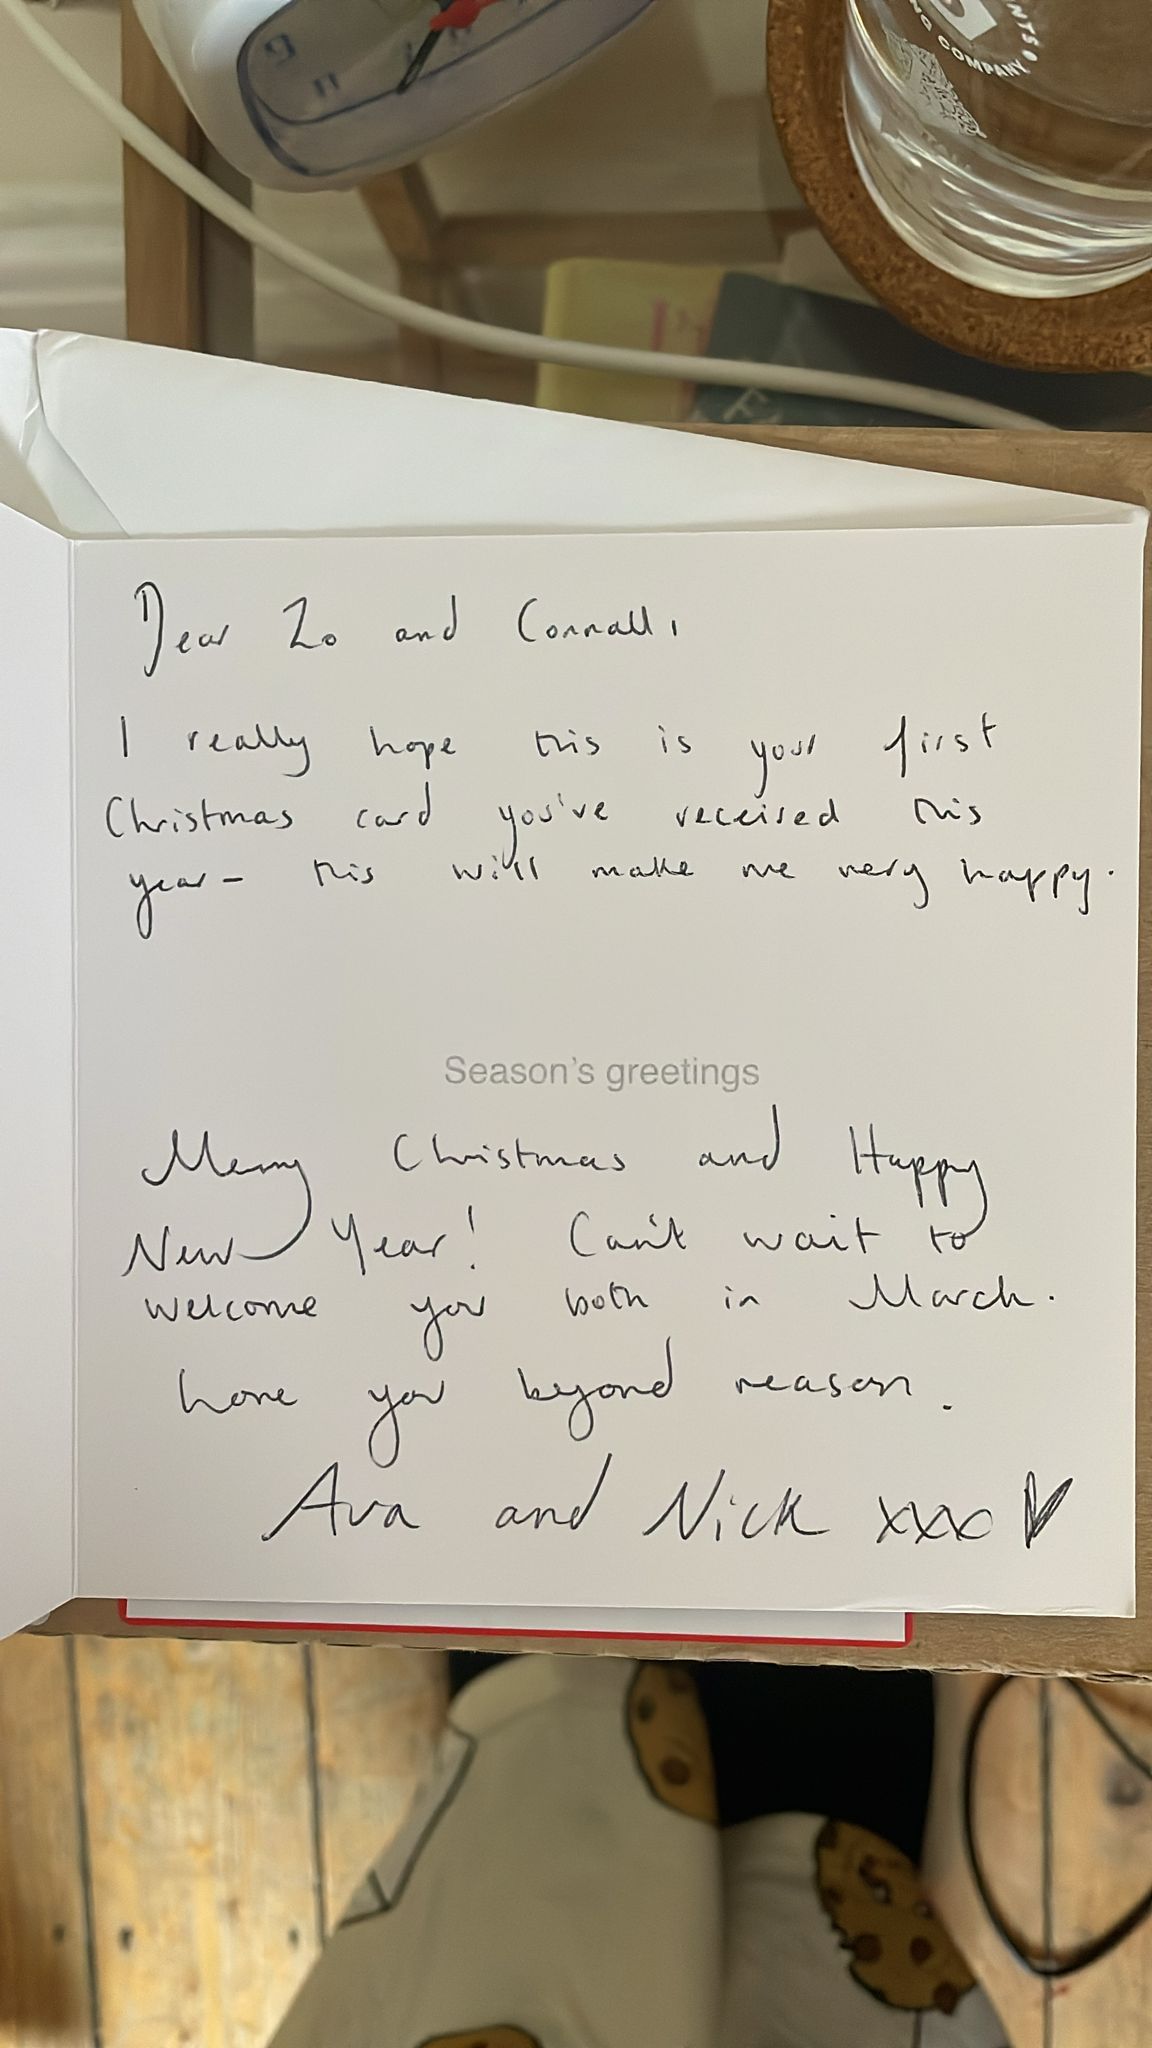 NTS
NG COMPANY
Dear Zo and Connall,
I really hope this is your first
Christmas card you've received this
year - this will make me very happy.
Season's greetings
Merry Christmas and Happy
New Year! Can't wait to
welcome you both in March.
Love you beyond reason.
Ava and Nick xxx